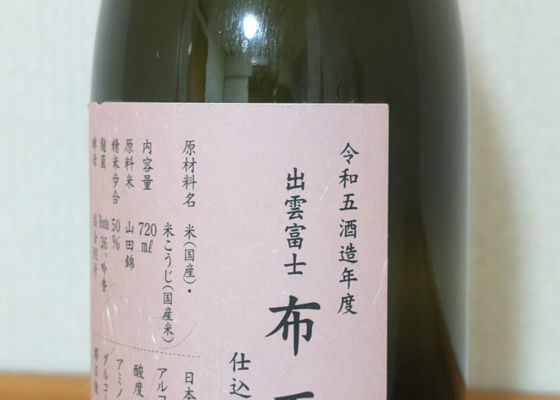 令和五酒造年度
出雲富士 布
仕込
原材料名 米(国産)・
米こうじ(国産米)
内容量 720ml
原料米 山田錦
精米歩合 50%
麹菌
日本
アルコ
酸度
アミノ
グルコー